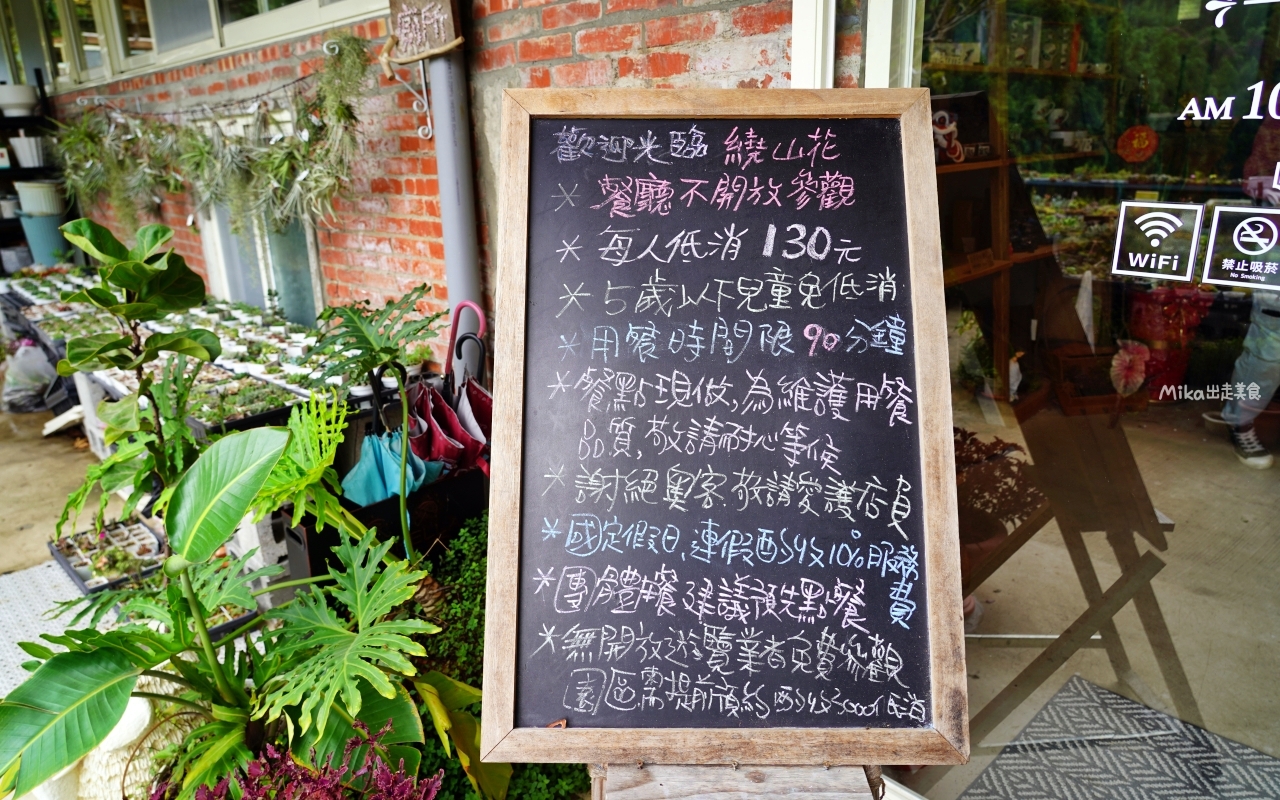 歡迎光臨 繞山花
＊餐廳不開放參觀
＊每人低消130元
＊5歲以下兒童免低消
＊用餐時間限90分鐘
＊餐點現做,為維護用餐
品質,敬請耐心等候
＊謝絕奧客.敬請愛護店員
＊國定假日、連假酌收10%服務費
＊團體用餐建議預先點餐
＊無開放遊覽業者免費參觀
園區需提前預約 酌收3000低消
AM 10
WiFi
禁止吸菸
No Smoking
福
Mika出走美食